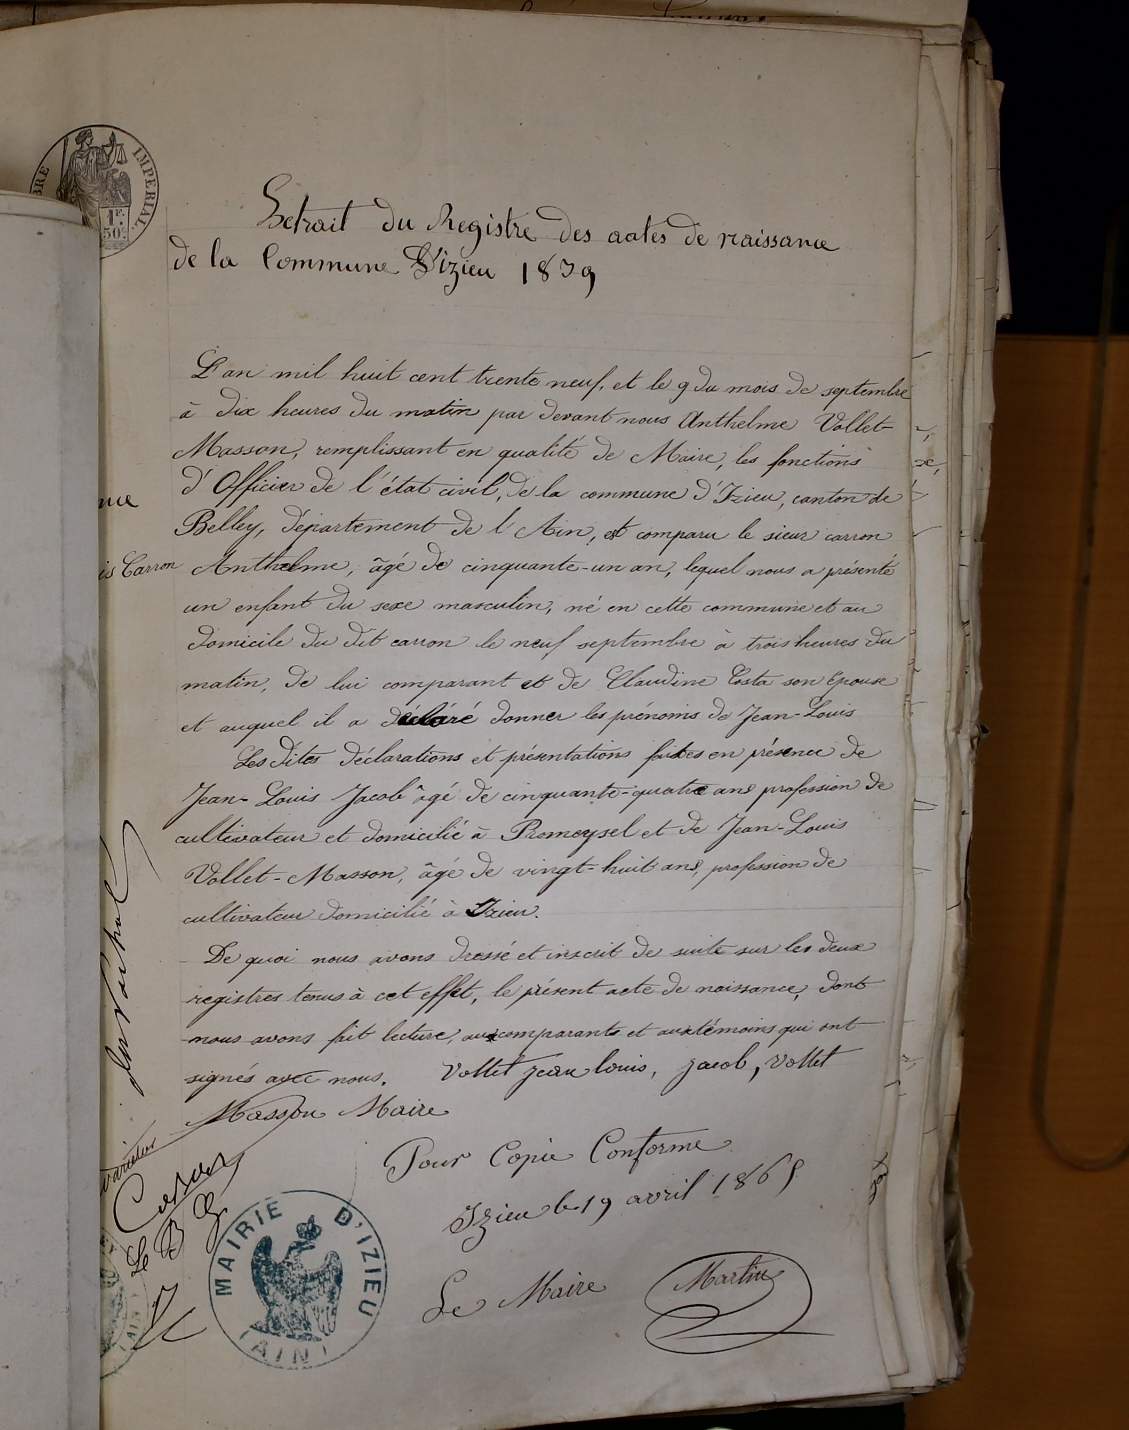 BRE IMPERIAL.
1F.
50c.
Extrait du Registre des actes de naissance
de la Commune D'izieu 1839
L'an mil huit cent trente neuf, et le 9 du mois de septembre
à dix heures du matin par devant nous Anthelme Vollet-
Masson, remplissant en qualité de Maire, les fonctions
d'Officier de l'état civil, de la commune d'Izieu, canton de
Belley, département de l'Ain, est comparu le sieur carron
Anthelme, âgé de cinquante-un an, lequel nous a présenté
un enfant du sexe masculin, né en cette commune et au
domicile du dit carron le neuf septembre à trois heures du
matin, de lui comparant et de Claudine Costa son épouse
et auquel il a déclaré donner les prénoms de Jean-Louis
Les dites déclarations et présentations faites en présence de
Jean-Louis Jacob âgé de cinquante-quatre ans profession de
cultivateur et domicilié à Premeysel et de Jean-Louis
Vollet-Masson, âgé de vingt-huit ans, profession de
cultivateur domicilié à Izieu.
De quoi nous avons dressé et inscrit de suite sur les deux
registres tenus à cet effet, le présent acte de naissance, dont
nous avons fait lecture, aux comparants et aux témoins qui ont
signés avec nous. Vollet jean louis, jacob, vollet
Masson Maire
nce
is Carron
Pour Copie Conforme
Izieu le 19 avril 1865
Le Maire Martin
MAIRIE D'IZIEU
(AIN)